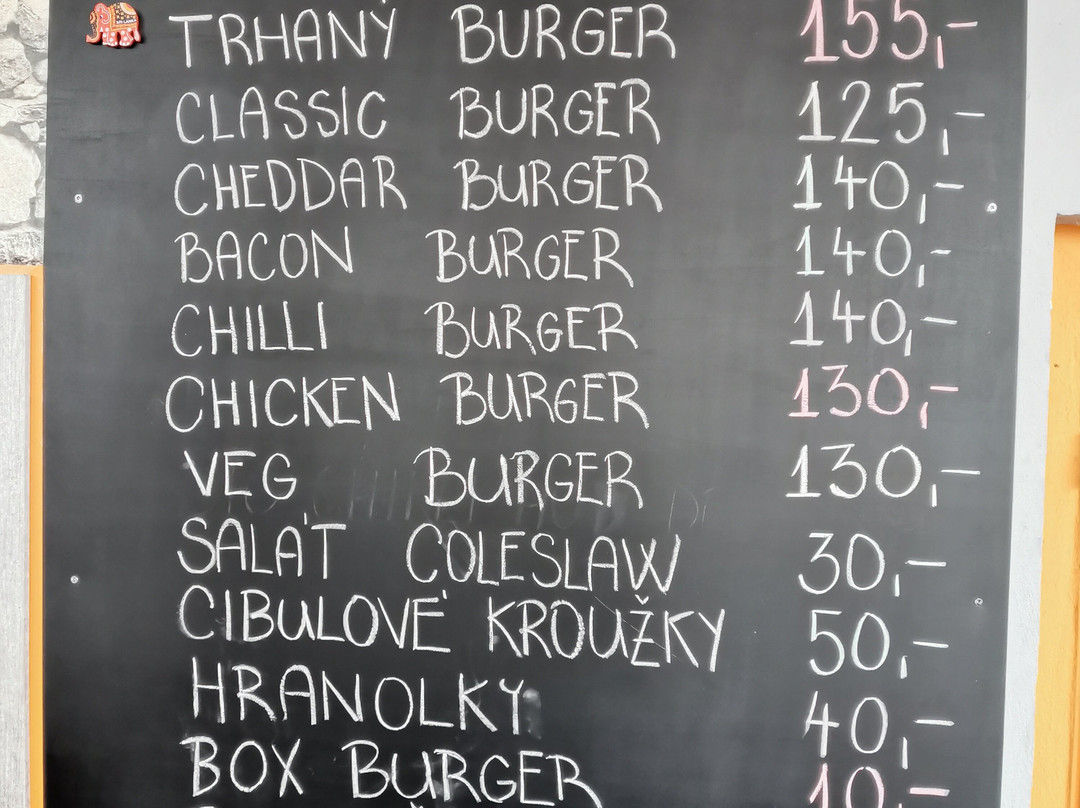 TRHANÝ BURGER 155,-
CLASSIC BURGER 125,-
CHEDDAR BURGER 140,-
BACON BURGER 140,-
CHILLI BURGER 140,-
CHICKEN BURGER 130,-
VEG BURGER 130,-
SALÁT COLESLAW 30,-
CIBULOVÉ KROUŽKY 50,-
HRANOLKY 40,-
BOX BURGER 10,-